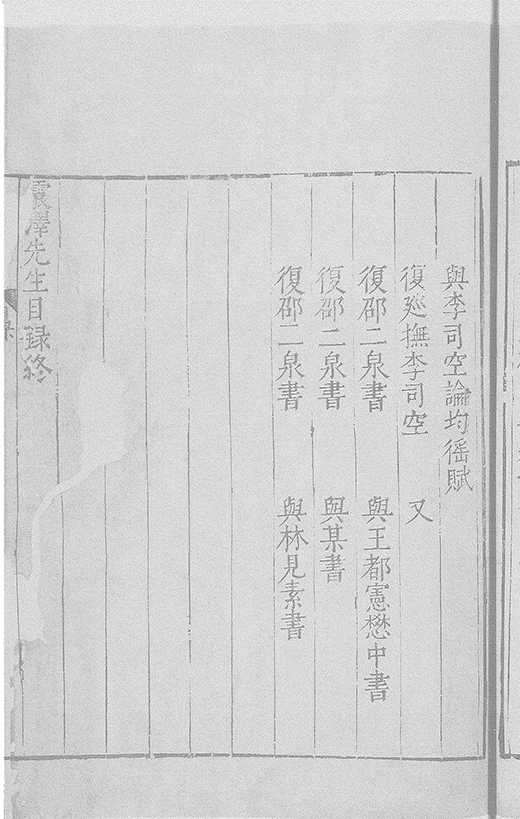 與李司空論均徭賦
復廵撫李司空　又
復邵二泉書　與王都憲懋中書
復邵二泉書　與某書
復邵二泉書　與林見素書
震澤先生目録終